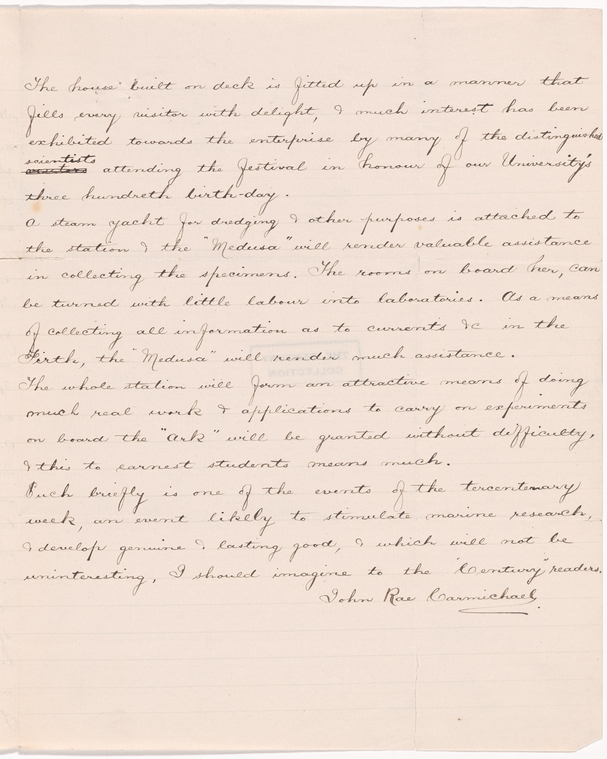 The house built on deck is fitted up in a manner that
fills every visitor with delight, & much interest has been
exhibited towards the enterprise by many of the distinguished
scientists
attending the festival in honour of our University's
three hundreth birth-day.
A steam yacht for dredging & other purposes is attached to
the station & the "Medusa" will render valuable assistance
in collecting the specimens. The rooms on board her, can
be turned with little labour into laboratories. As a means
of collecting all information as to currents &c in the
Firth, the "Medusa" will render much assistance.
The whole station will form an attractive means of doing
much real work & applications to carry on experiments
on board the "Ark" will be granted without difficulty,
& this to earnest students means much.
Such briefly is one of the events of the tercentenary
week, an event likely to stimulate marine research,
& develop genuine & lasting good, & which will not be
uninteresting, I should imagine to the "Century" readers.
John Rae Carmichael.